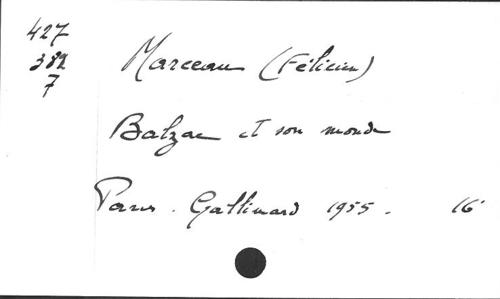 427
382
7
Marceau (Félicien)
Balzac et son monde
Paris. Gallimard 1955. 16°